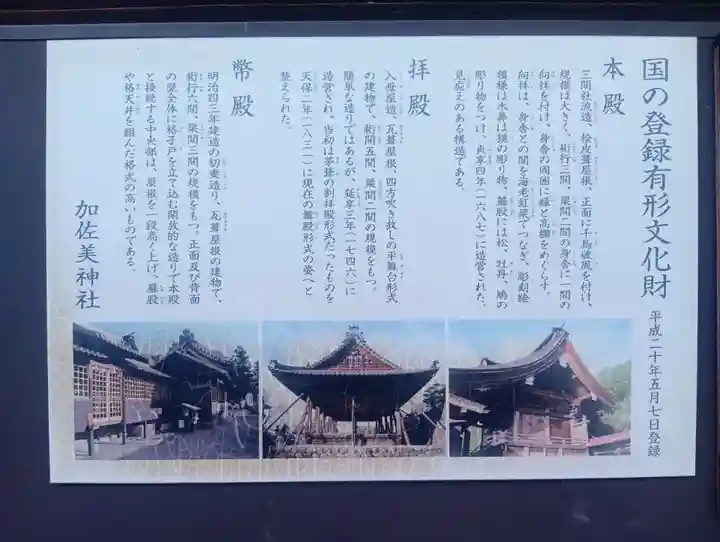 国の登録有形文化財
平成二十年五月七日登録
本殿
三間社流造、桧皮葺屋根、正面に千鳥破風を付け、
規模は大きく、桁行三間、梁間二間の身舎に一間の
向拝を付け、身舎の周囲に縁と高欄をめぐらす。
向拝は、身舎との間を海老虹梁でつなぎ、彫刻絵
模様は木鼻は獏の彫り物、蟇股には松、牡丹、鳩の
彫り物をつけ、貞享四年(一六八七)に造営された。
見応えのある構造である。
拝殿
入母屋造、瓦葺屋根、四方吹き放しの平舞台形式
の建物で、桁間五間、梁間二間の規模をもつ。
簡単な造りではあるが、延享三年(一七四六)に
造営され、当初は茅葺の割拝殿形式だったものを
天保二年(一八三一)に現在の舞殿形式の姿へと
整えられた。
幣殿
明治四三年建造の切妻造り、瓦葺屋根の建物で、
桁行六間、梁間三間の規模をもつ。正面及び背面
の壁全体に格子戸を立て込む開放的な造りで本殿
と接続する中央部は、屋根を一段高く上げ、蟇股
や格天井を組んだ格式の高いものである。
加佐美神社